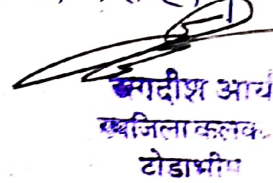 जगदीश आर्य
उपजिला कलक
टोडाभीम